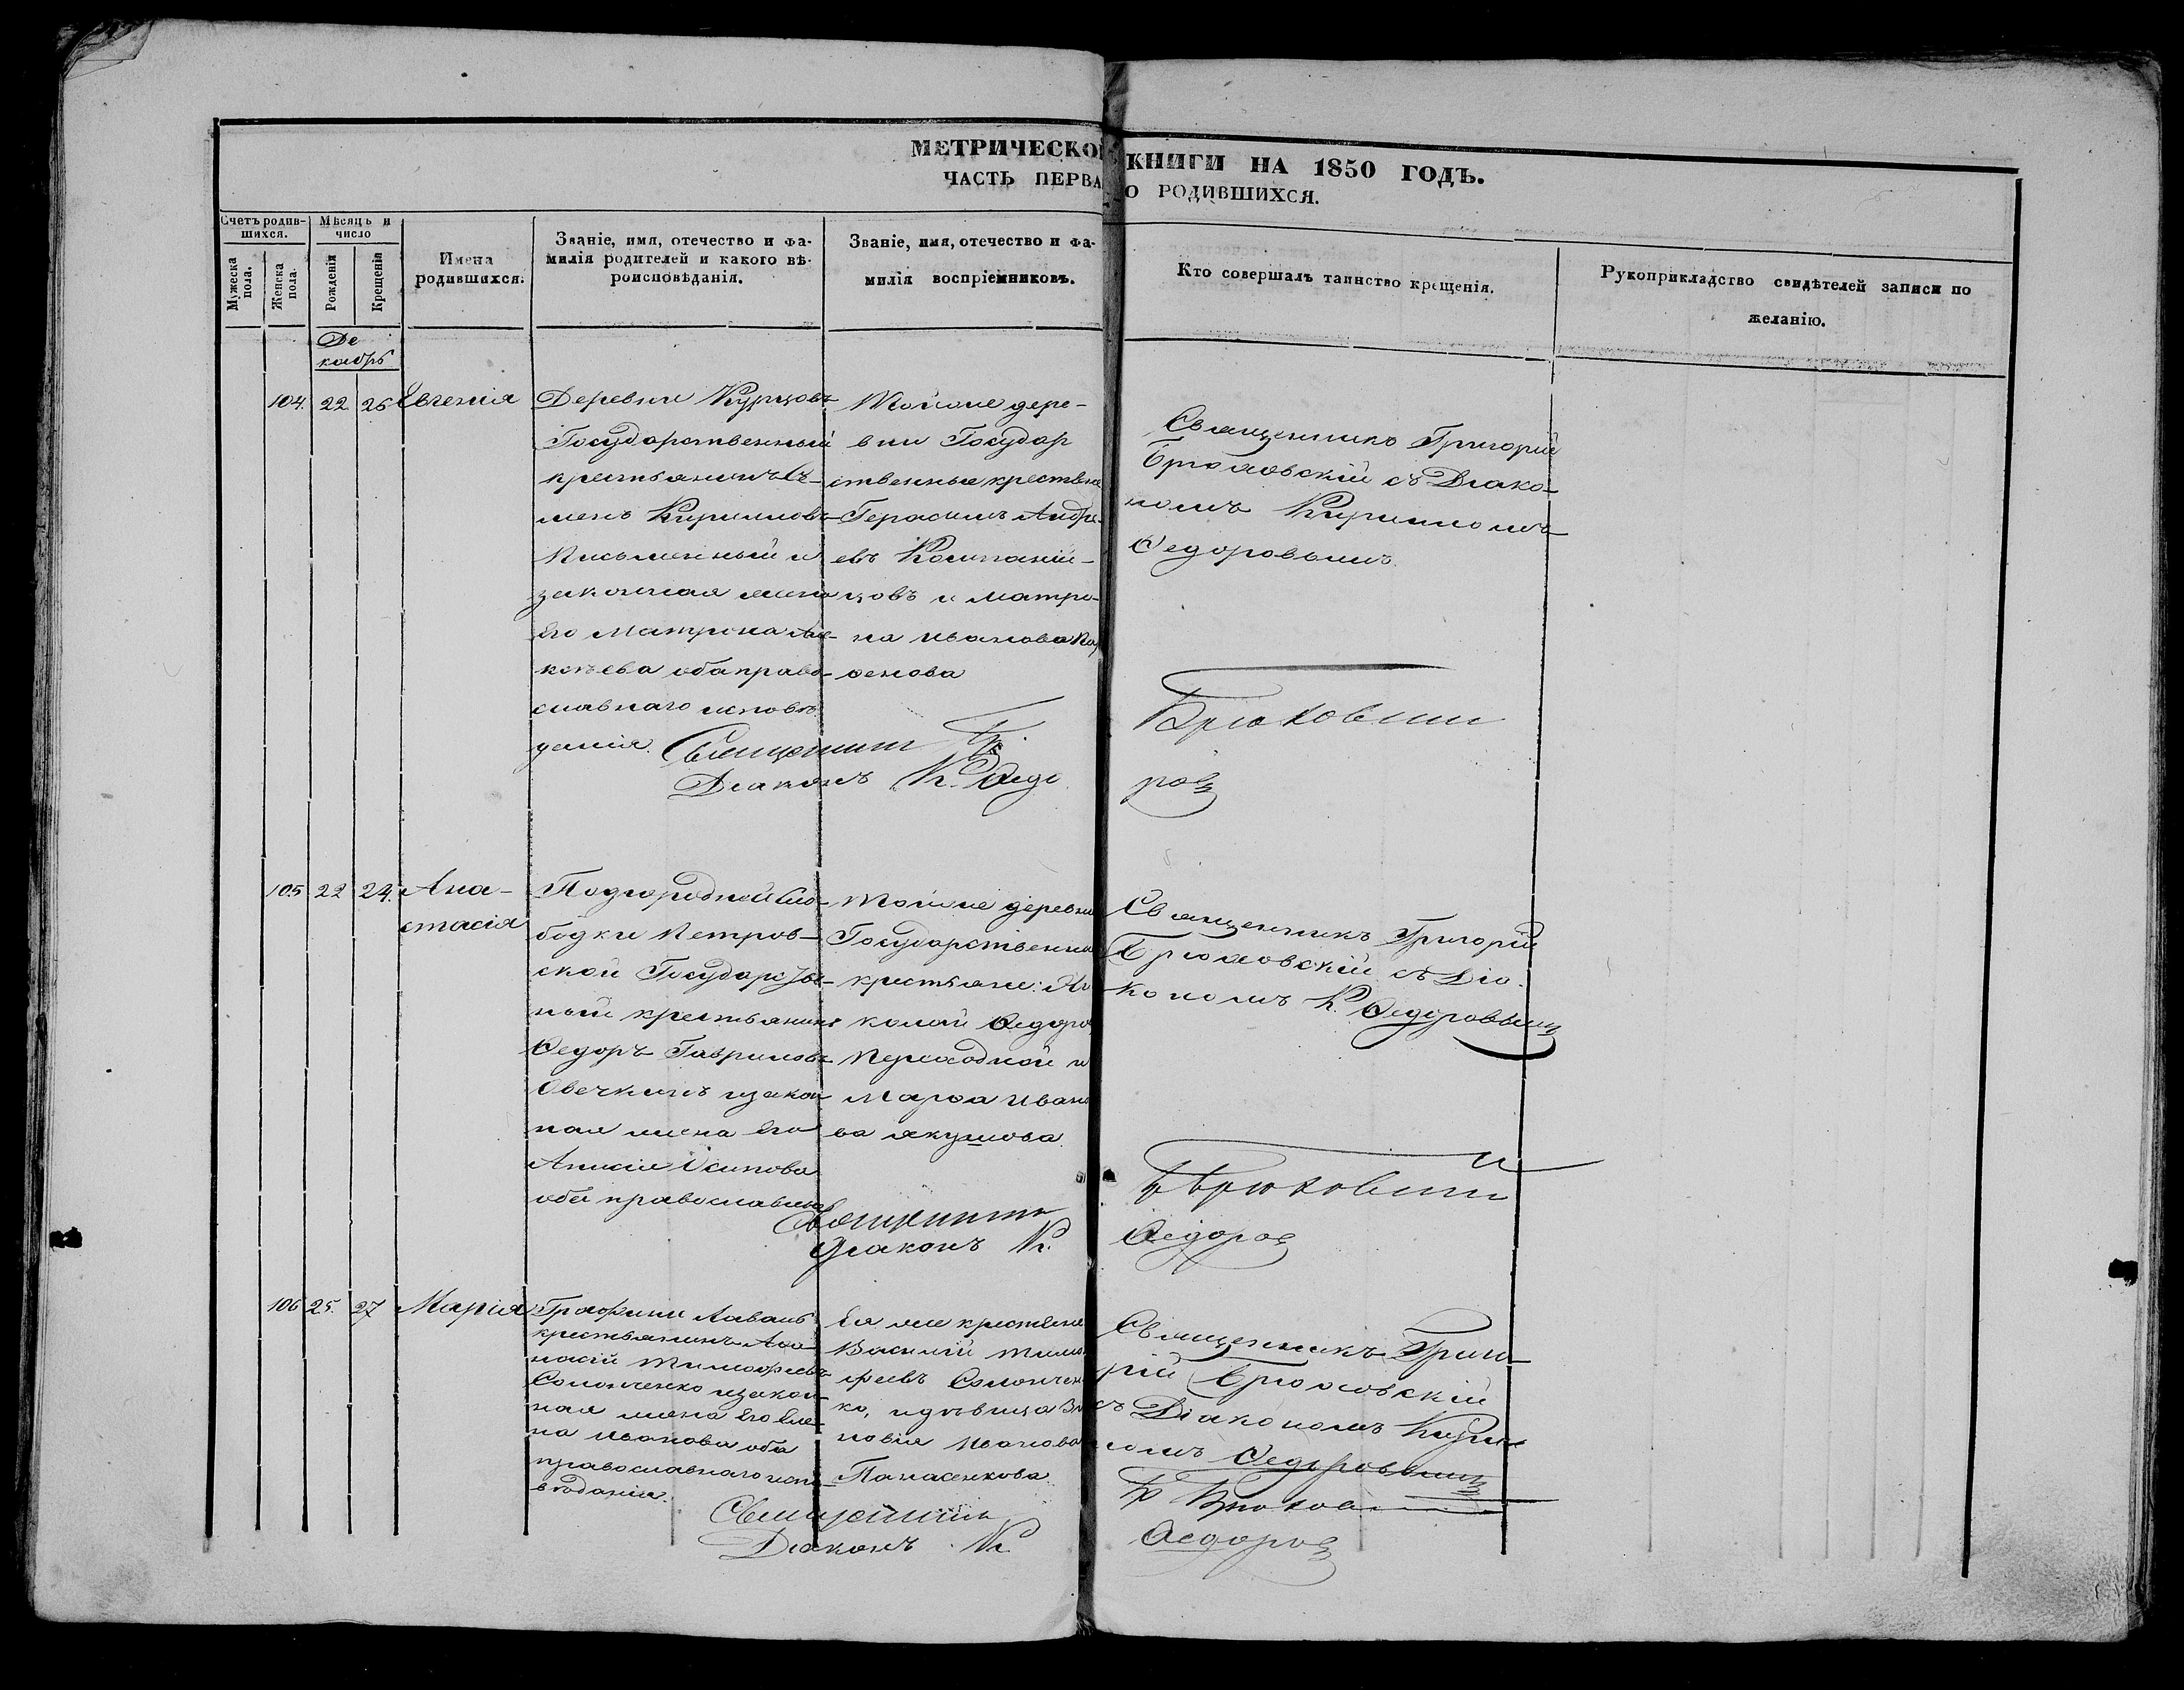 МЕТРИЧЕСКОЙ КНИГИ НА 1850 ГОДЪ.
ЧАСТЬ ПЕРВА О РОДИВШИХСЯ.
Счетъ родив-
шихся.
Мужеска пола.
Женска пола.
Мѣсяцъ и
число
Рожденія
Крещенія
Имена
родившихся.
Званіе, имя, отечество и фа-
милія родителей и какого вѣ-
роисповѣданія.
Званіе, имя, отечество и фа-
милія воспріемниковъ.
Кто совершалъ таинство крещенія.
Рукоприкладство свидѣтелей записи по
желанію.
Де
кабрь
104. 22 26 Евгенія
Деревни
Государственный
крестьянинъ Се-
менъ Кирилловъ
Письменный и
законная жена
Его Матрона Але-
ксѣева оба право-
славнаго исповѣ
данія.
Тойже дере-
вни Государ
ственные крестьяне
Герасимъ Андре-
евъ Компаній-
цовъ и Матро-
на Иванова
Священникъ Григорій
Брюховскій съ Діако-
номъ Кирилломъ
Ѳедоровымъ
Священникъ Гр. Брюховскій
Діаконъ К. Ѳедоровъ
105 22 24. Ана-
стасія
Подгородной Сло-
бодки Петров-
ской Государстве-
ный крестьянинъ
Ѳедоръ Гавриловъ
Овечкинъ и закон
ная жена Его
Анисія Осипова
оба православна
Тойже деревни
Государственные
крестьяне: Ни
колай Ѳедоро
Переходной и
Марѳа Ивано
ва Якушова.
Священникъ Григорій
Брюховскій съ Діа-
кономъ К. Ѳедоровымъ
Священникъ Г Брюховскій
Діаконъ К. Ѳедоровъ
106 25. 27 Марія
Графини Лаваль
крестьянинъ Аѳа-
насій Тимофеевъ
Солонченко и закон-
ная жена Его Еле-
на Иванова оба
православнаго испо-
вѣданія.
Ея же крестьяне
Василій Тимо-
феевъ Солончен
ко, и дѣвица Зи
новія Иванова
Панасенкова
Священникъ Григо-
рій Брюховскій
съ Діакономъ Кирил
ломъ Ѳедоровымъ
Священникъ Г Брюхов
Діаконъ К. Ѳедоровъ